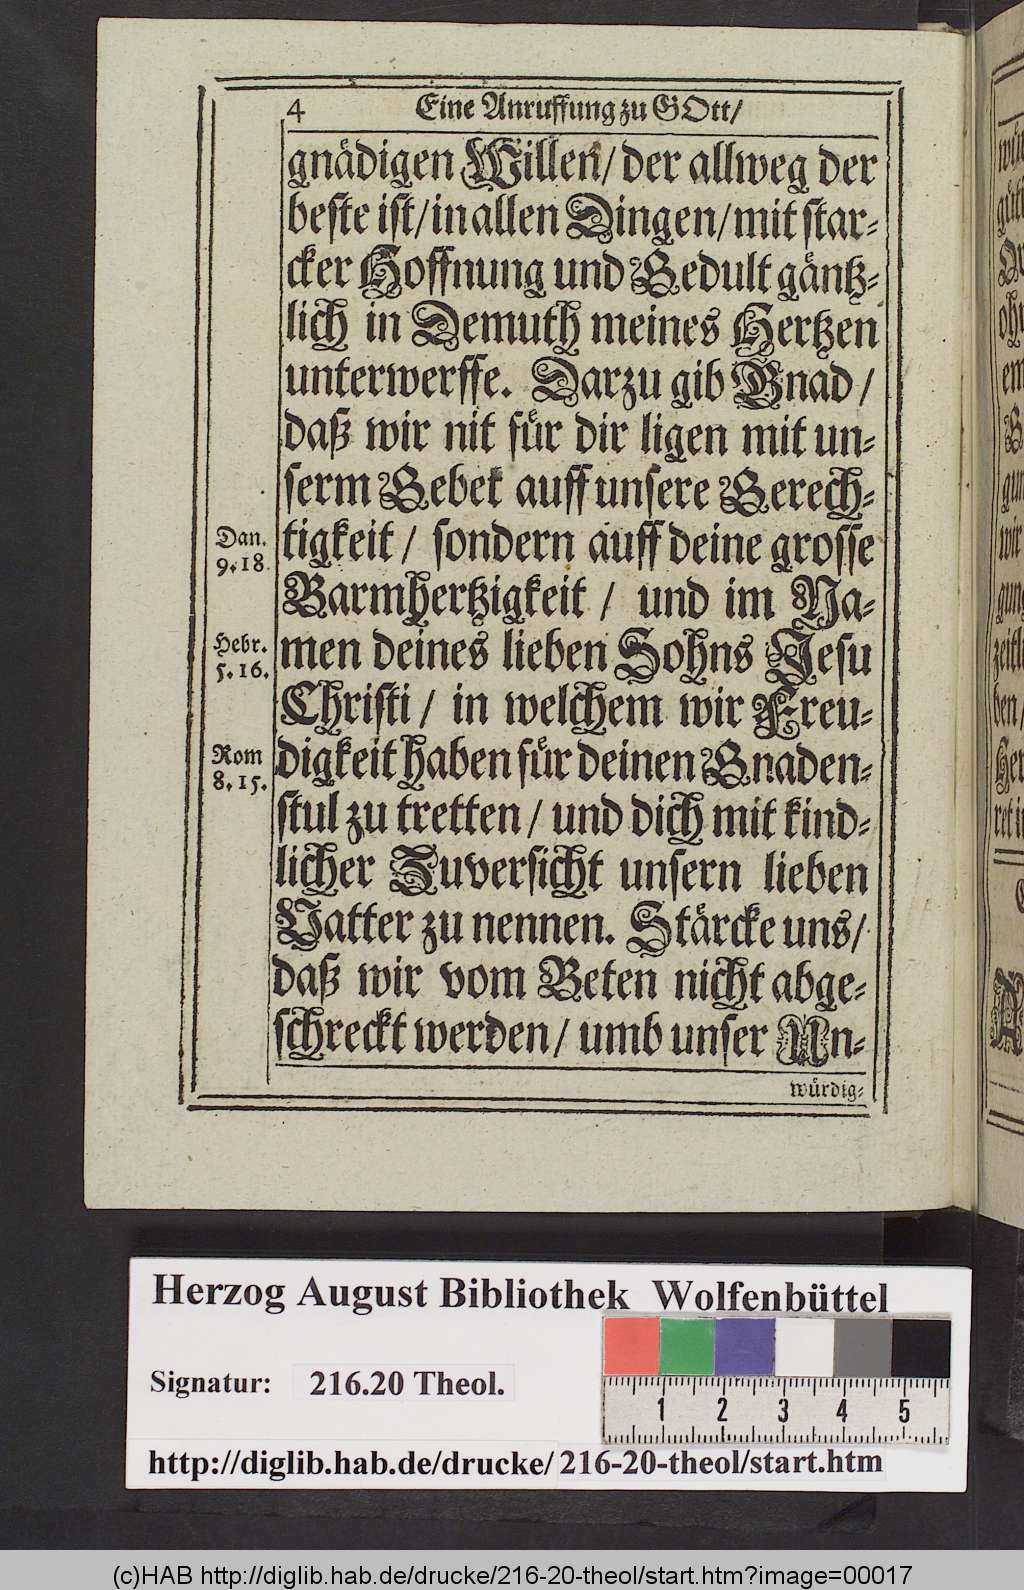 4 Eine Anruffung zu GOtt/
gnädigen Willen/ der allweg der
beste ist/ in allen Dingen/ mit star-
cker Hoffnung und Gedult gäntz-
lich in Demuth meines Hertzen
unterwerffe. Darzu gib Gnad/
daß wir nit für dir ligen mit un-
serm Gebet auff unsere Gerech-
Dan. 9.18.
tigkeit/ sondern auff deine grosse
Barmhertzigkeit/ und im Na-
Hebr. 5.16.
men deines lieben Sohns Jesu
Christi/ in welchem wir Freu-
Rom 8.15.
digkeit haben für deinen Gnaden-
stul zu tretten/ und dich mit kind-
licher Zuversicht unsern lieben
Vatter zu nennen. Stärcke uns/
daß wir vom Beten nicht abge-
schreckt werden/ umb unser Un-
würdig-
Herzog August Bibliothek Wolfenbüttel
Signatur: 216.20 Theol.
1 2 3 4 5
http://diglib.hab.de/drucke/216-20-theol/start.htm
(c)HAB http://diglib.hab.de/drucke/216-20-theol/start.htm?image=00017